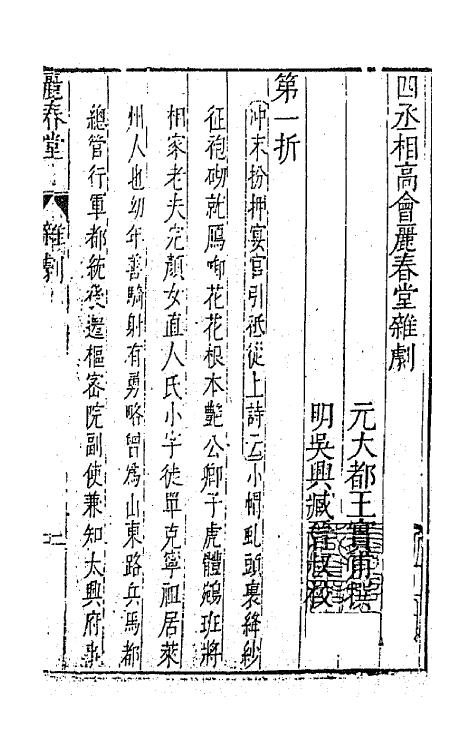 四丞相高會麗春堂雜劇
元大都王實甫撰
明吳興臧晉叔校
第一折
沖末扮押宴官引祗從上詩云小帽虬頭裹絳紗
征袍砌就鴈啣花花根本艷公卿子虎體鵷班將
相家老夫完顏女直人氏小字徒單克寧祖居萊
州人也幼年善騎射有勇略曾為山東路兵馬都
總管行軍都統後遷樞密院副使兼知大興府事
麗春堂
雜劇